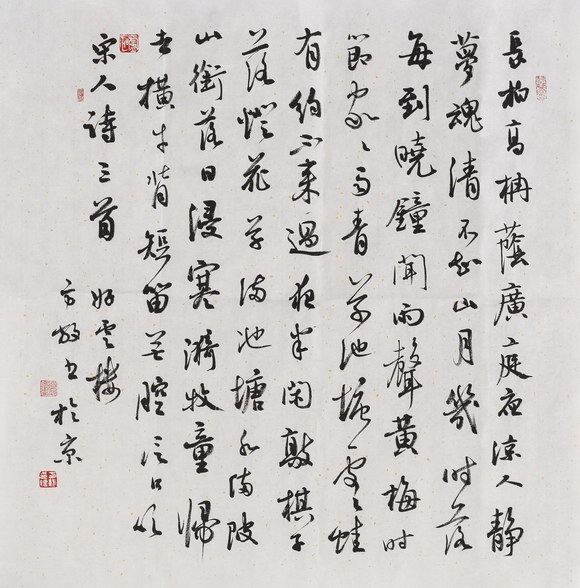 長柏高枬蔭廣庭夜涼人静
夢魂清不知山月幾时落
每到曉鐘聞雨聲黄梅时
節家〻雨青草池塘處〻蛙
有約不來過夜半閑敲棋子
落燈花草满池塘水满陂
山銜落日浸寒漪牧童歸
去横牛背短笛無腔信口吹
宋人詩三首 好雲樓
书於京